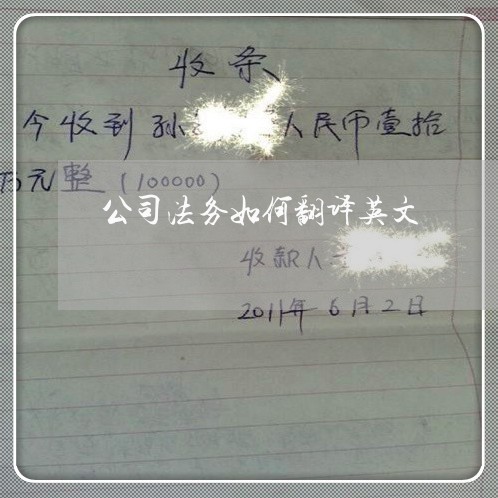 收条
今收到孙 人民币壹拾
万元整(100000)
公司法务如何翻译英文
收款人
2011年6月2日